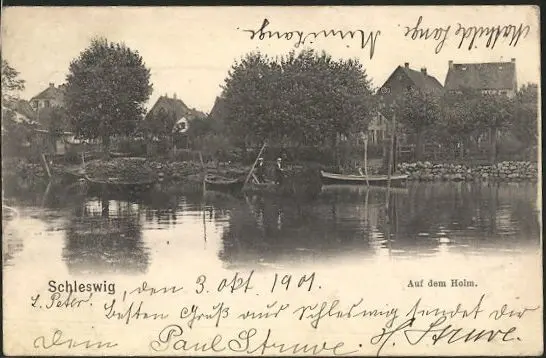 Mathilde Lange
Minni Lange
Schleswig, den 3. Okt 1901.
Auf dem Holm.
Besten Gruß aus Schleswig sendet Dir
Dein Paul Struve. H. Struve.